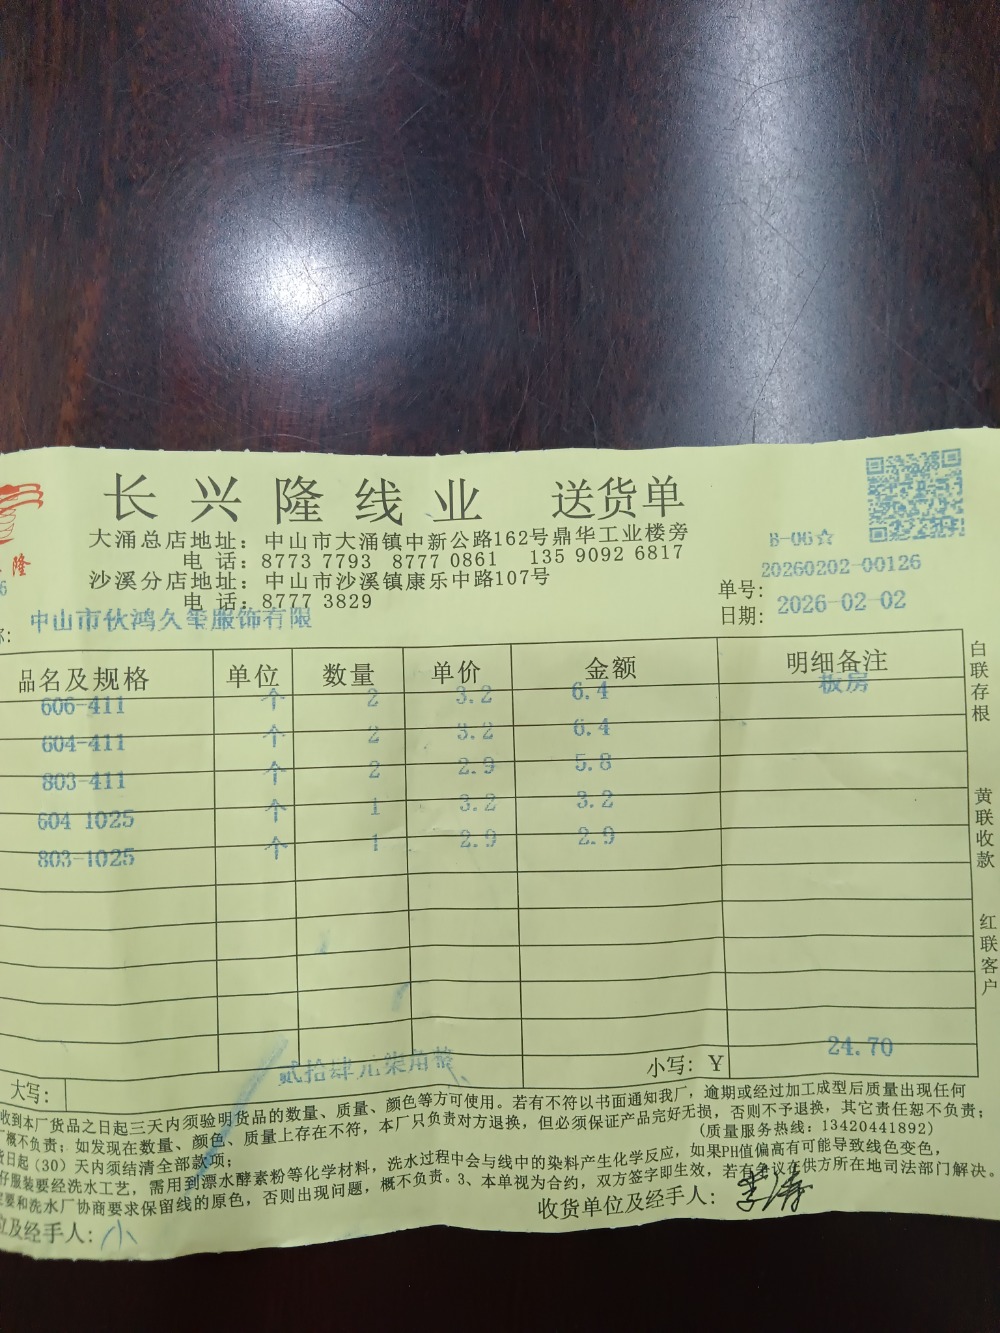 长兴隆线业 送货单
大涌总店地址：中山市大涌镇中新公路162号鼎华工业楼旁
电 话：8773 7793 8777 0861 135 9092 6817
沙溪分店地址：中山市沙溪镇康乐中路107号
电 话：8777 3829
隆
6
B-06☆
单号：20260202-00126
日期：2026-02-02
称：中山市伙鸿久玺服饰有限
品名及规格 单位 数量 单价 金额 明细备注
606-411 个 2 3.2 6.4 板房
604-411 个 2 3.2 6.4
803-411 个 2 2.9 5.8
604 1025 个 1 3.2 3.2
803-1025 个 1 2.9 2.9
大写： 贰拾肆元柒角整 小写：￥ 24.70
白联存根
黄联收款
红联客户
收到本厂货品之日起三天内须验明货品的数量、质量、颜色等方可使用。若有不符以书面通知我厂，逾期或经过加工成型后质量出现任何
概不负责；如发现在数量、颜色、质量上存在不符，本厂只负责对方退换，但必须保证产品完好无损，否则不予退换，其它责任恕不负责；
日起（30）天内须结清全部款项； （质量服务热线：13420441892）
服装要经洗水工艺，需用到漂水酵素粉等化学材料，洗水过程中会与线中的染料产生化学反应，如果PH值偏高有可能导致线色变色，
要和洗水厂协商要求保留线的原色，否则出现问题，概不负责。3、本单视为合约，双方签字即生效，若有争议在供方所在地司法部门解决。
位及经手人：小 收货单位及经手人：李涛